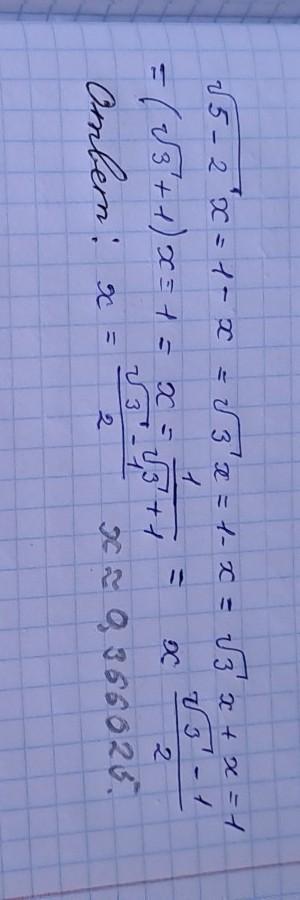 √5 - 2 x = 1 - x = √3 x = 1 - x = √3 x + x = 1
= (√3 + 1) x = 1 = x = 1/(√3 + 1) = x (√3 - 1)/2
Ответ: x = (√3 - 1)/2 x ≈ 0,366025.